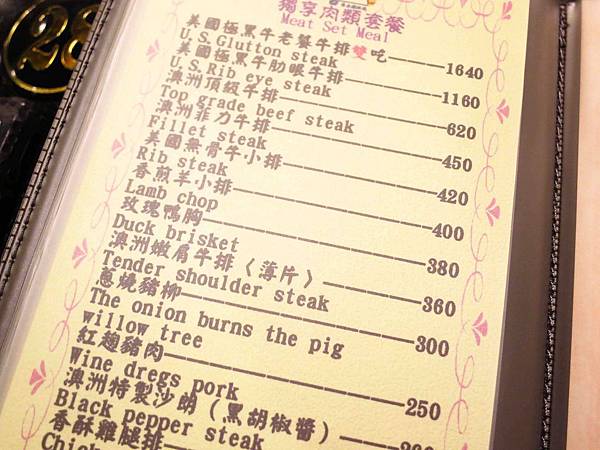 28
獨享肉類套餐
Meat Set Meal
美國極黑牛老饕牛排雙吃————1640
U.S.Glutton steak
美國極黑牛肋眼牛排————1160
U.S.Rib eye steak
澳洲頂級牛排————620
Top grade beef steak
澳洲菲力牛排————450
Fillet steak
美國無骨牛小排————420
Rib steak
香煎羊小排————400
Lamb chop
玫瑰鴨胸————380
Duck brisket
澳洲嫩肩牛排〈薄片〉————360
Tender shoulder steak
蔥燒豬柳————300
The onion burns the pig
willow tree
紅麴豬肉————250
Wine dregs pork
澳洲特製沙朗（黑胡椒醬）————
Black pepper steak
香酥雞腿排————